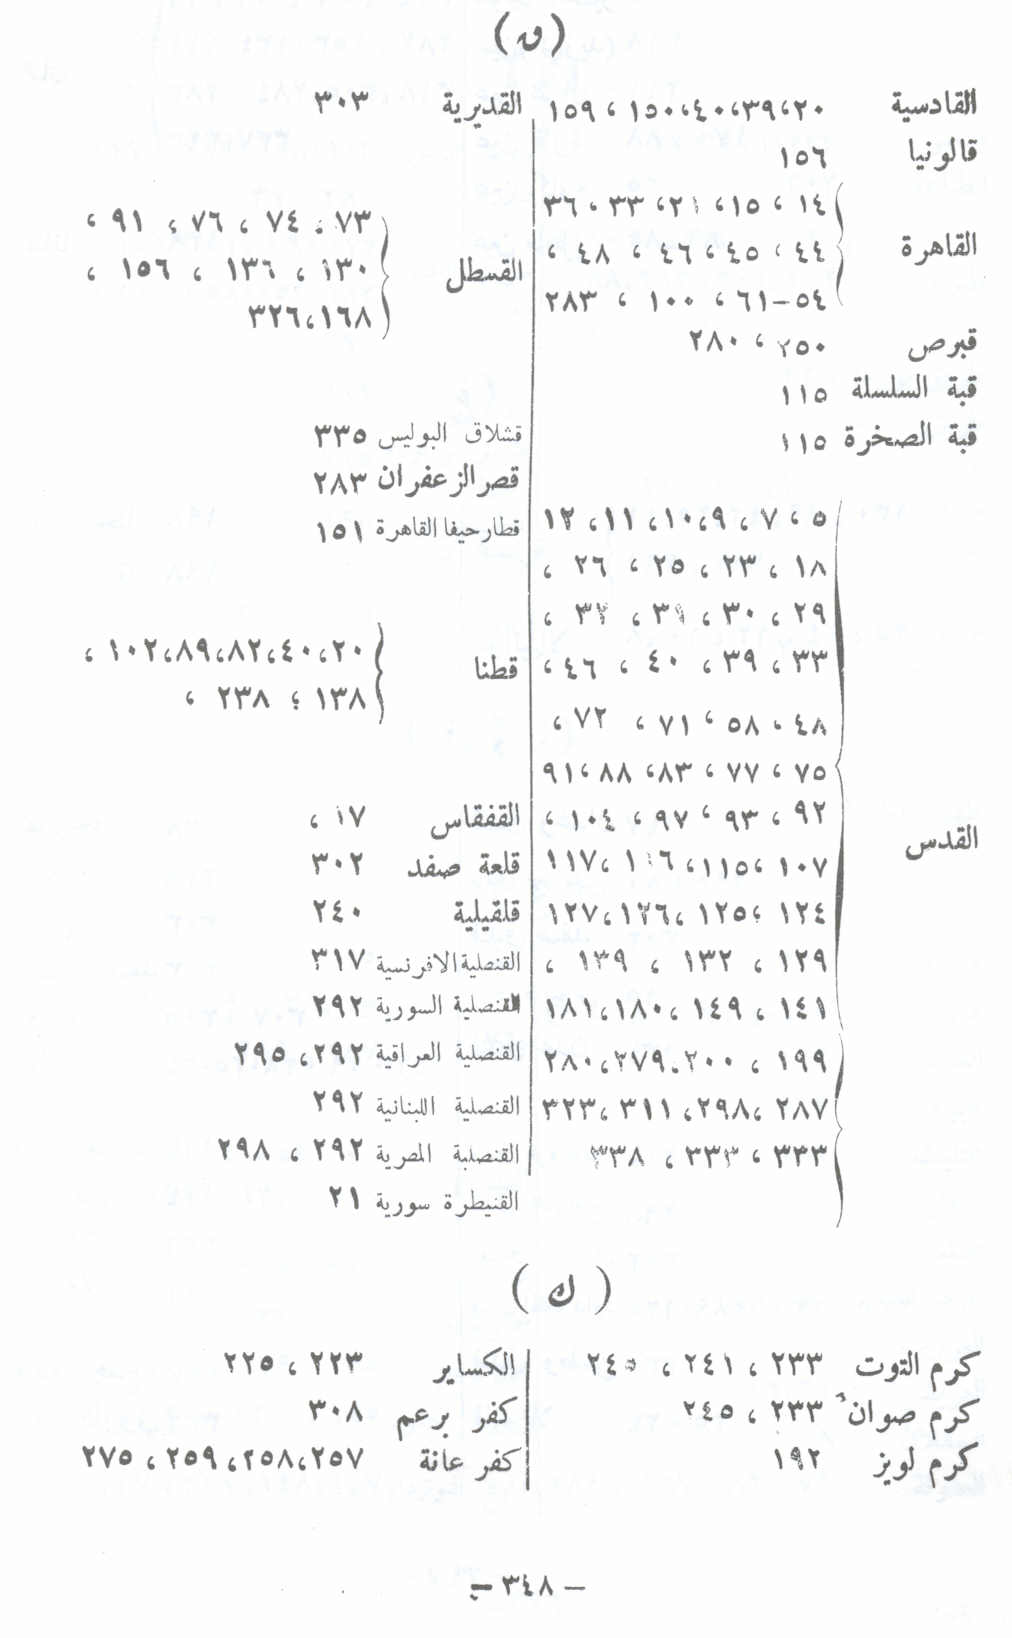 (ق)
القادسية ٢٠،٣٩،٤٠،١٥٠ ، ١٥٩
قالونيا ١٥٦
١٤ ، ١٥، ٢١، ٣٣ ، ٣٦
القاهرة ٤٤ ، ٤٥، ٤٦ ، ٤٨ ،
٥٤–٦١ ، ١٠٠ ، ٢٨٣
قبرص ٢٥٠ ، ٢٨٠
قبة السلسلة ١١٥
قبة الصخرة ١١٥
٥ ، ٧، ٩،١٠، ١١، ١٢
١٨ ، ٢٣ ، ٢٥ ، ٢٦ ،
٢٩ ، ٣٠ ، ٣١ ، ٣٢ ،
٣٣ ، ٣٩ ، ٤٠ ، ٤٦ ،
٤٨ ، ٥٨ ، ٧١ ، ٧٢ ،
٧٥ ، ٧٧ ، ٨٣، ٨٨ ،٩١
٩٢ ، ٩٣ ، ٩٧ ، ١٠٤ ،
القدس ١٠٧ ، ١١٥، ١١٦ ،١١٧
١٢٤ ، ١٢٥، ١٢٦، ١٢٧
١٢٩ ، ١٣٢ ، ١٣٩ ،
١٤١ ، ١٤٩ ،١٨٠،١٨١
١٩٩ ، ٢٠٠،٢٧٩،٢٨٠
٢٨٧ ،٢٩٨، ٣١١ ،٣٢٣
٣٣٣ ، ٣٣٣ ، ٣٣٨
القديرية ٣٠٣
٧٣ ، ٧٤ ، ٧٦ ، ٩١ ،
القسطل ١٣٠ ، ١٣٦ ، ١٥٦ ،
١٦٨،٣٢٦
قشلاق البوليس ٣٣٥
قصر الزعفران ٢٨٣
قطار حيفا القاهرة ١٥١
قطنا ٢٠،٤٠،٨٢،٨٩،١٠٢ ،
١٣٨ ؛ ٢٣٨ ،
القفقاس ١٧ ،
قلعة صفد ٣٠٢
قلقيلية ٢٤٠
القنصلية الافرنسية ٣١٧
القنصلية السورية ٢٩٢
القنصلية العراقية ٢٩٢، ٢٩٥
القنصلية اللبنانية ٢٩٢
القنصلية المصرية ٢٩٢ ، ٢٩٨
القنيطرة سورية ٢١
( ك )
كرم التوت ٢٣٣ ، ٢٤١ ، ٢٤٥
كرم صوان ٢٣٣ ، ٢٤٥
كرم لويز ١٩٢
الكساير ٢٢٣ ، ٢٢٥
كفر برعم ٣٠٨
كفر عانة ٢٥٧،٢٥٨، ٢٥٩ ، ٢٧٥
– ٣٤٨ –